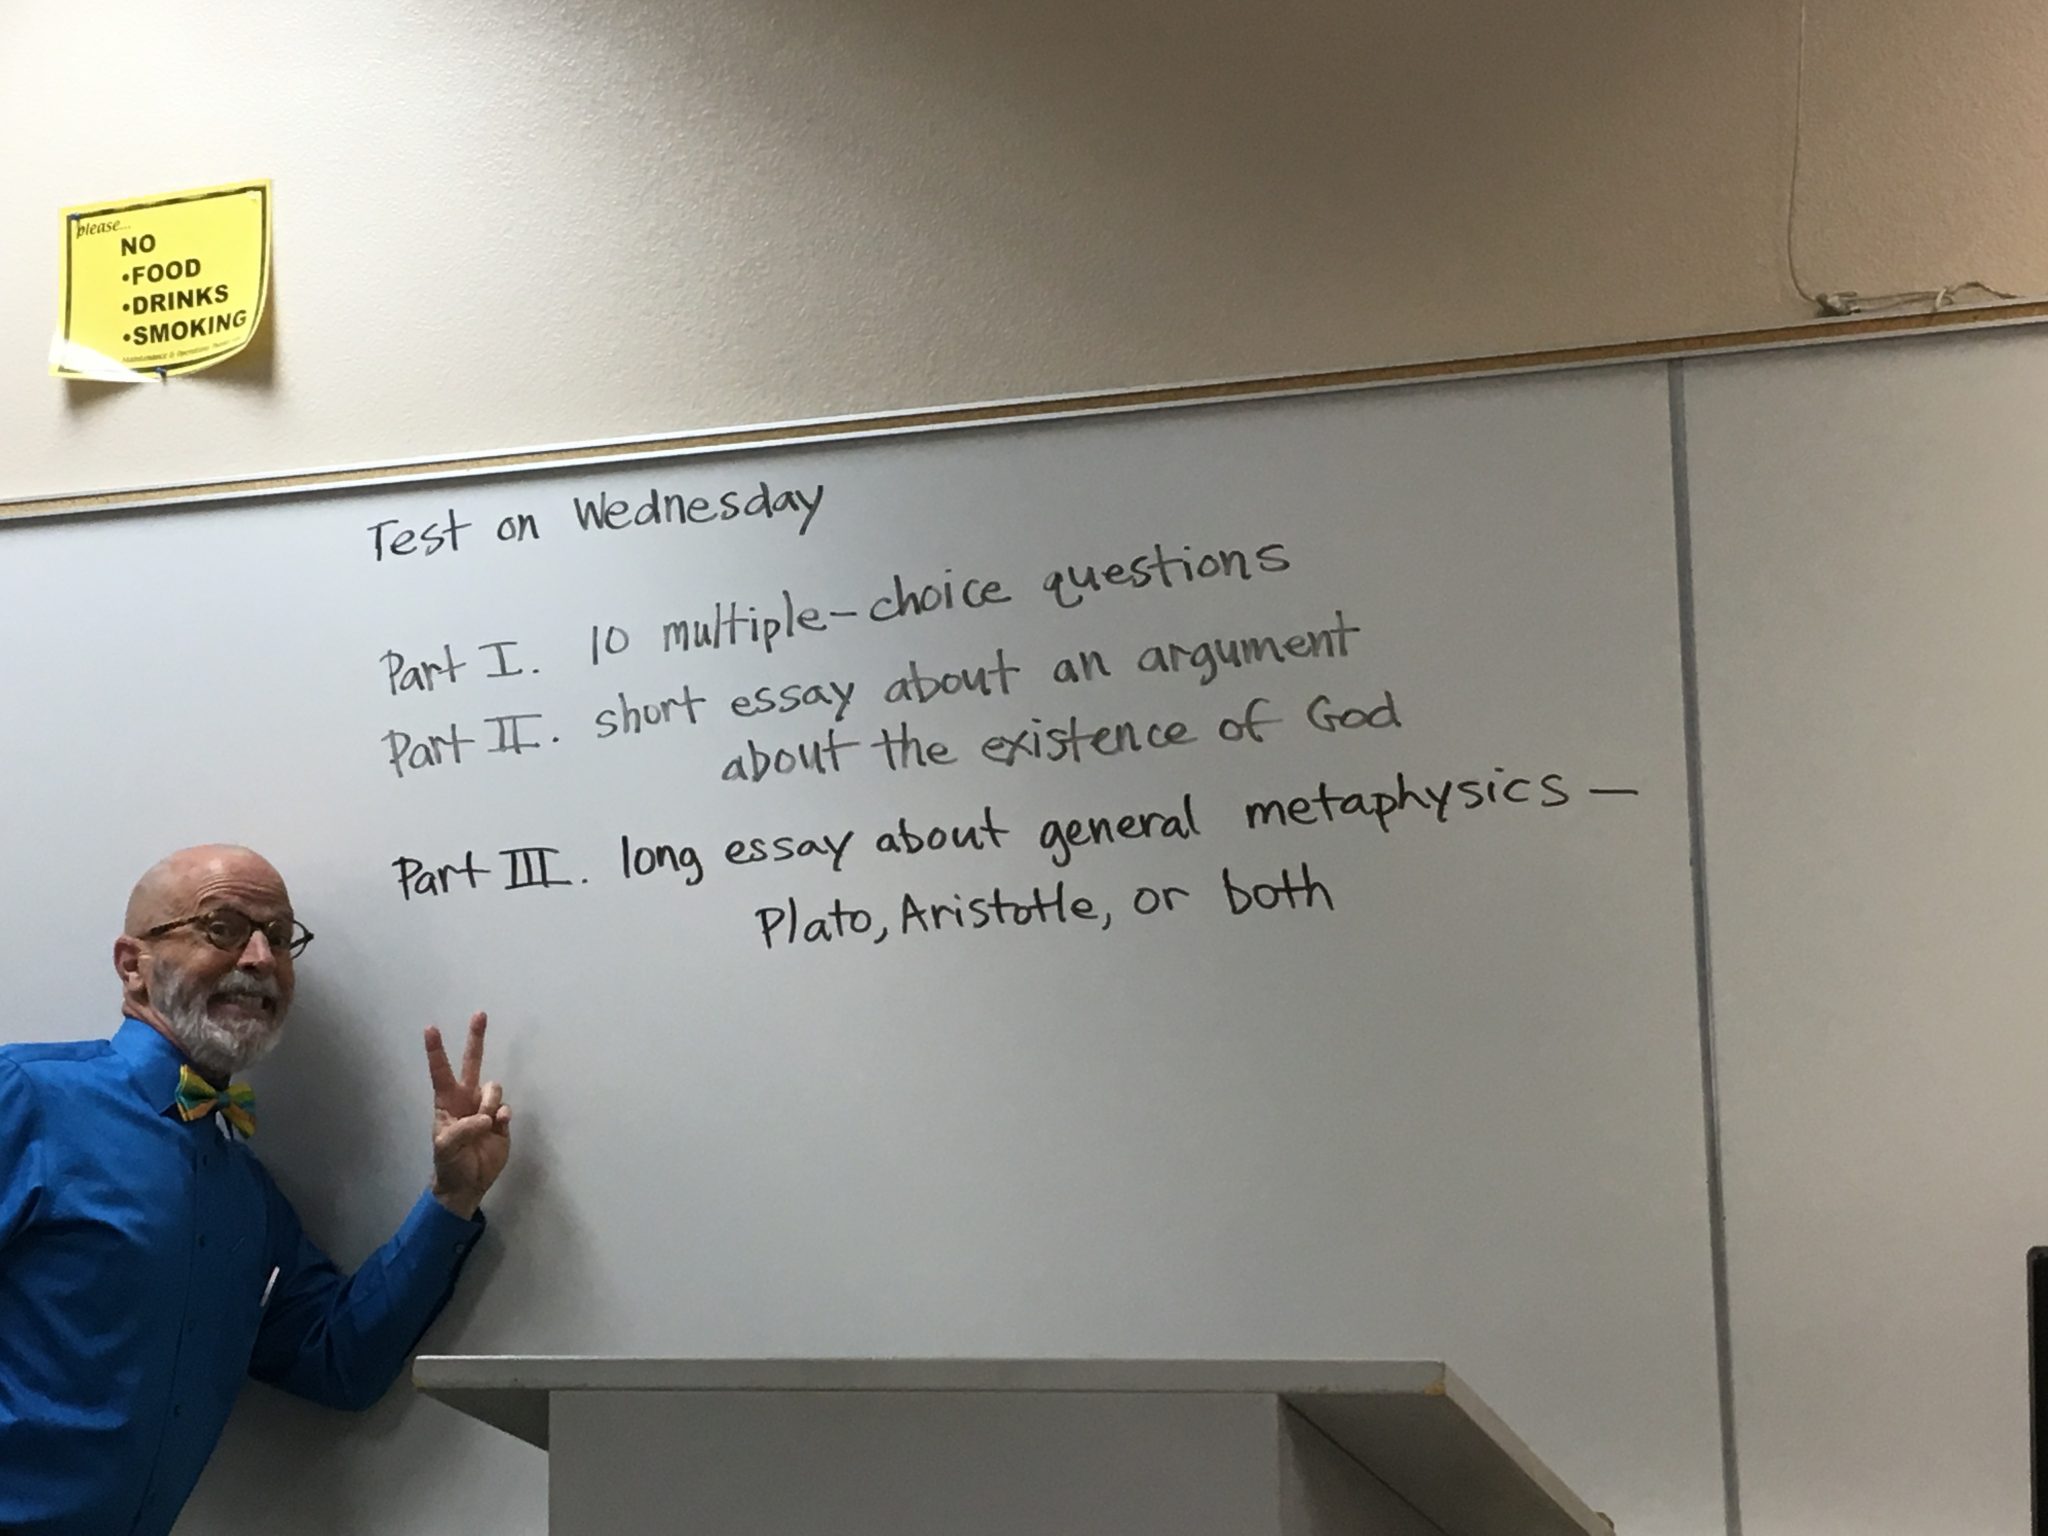 please...
NO
•FOOD
•DRINKS
•SMOKING
Maintenance & Operations
Test on Wednesday
Part I. 10 multiple-choice questions
Part II. short essay about an argument
about the existence of God
Part III. long essay about general metaphysics —
Plato, Aristotle, or both